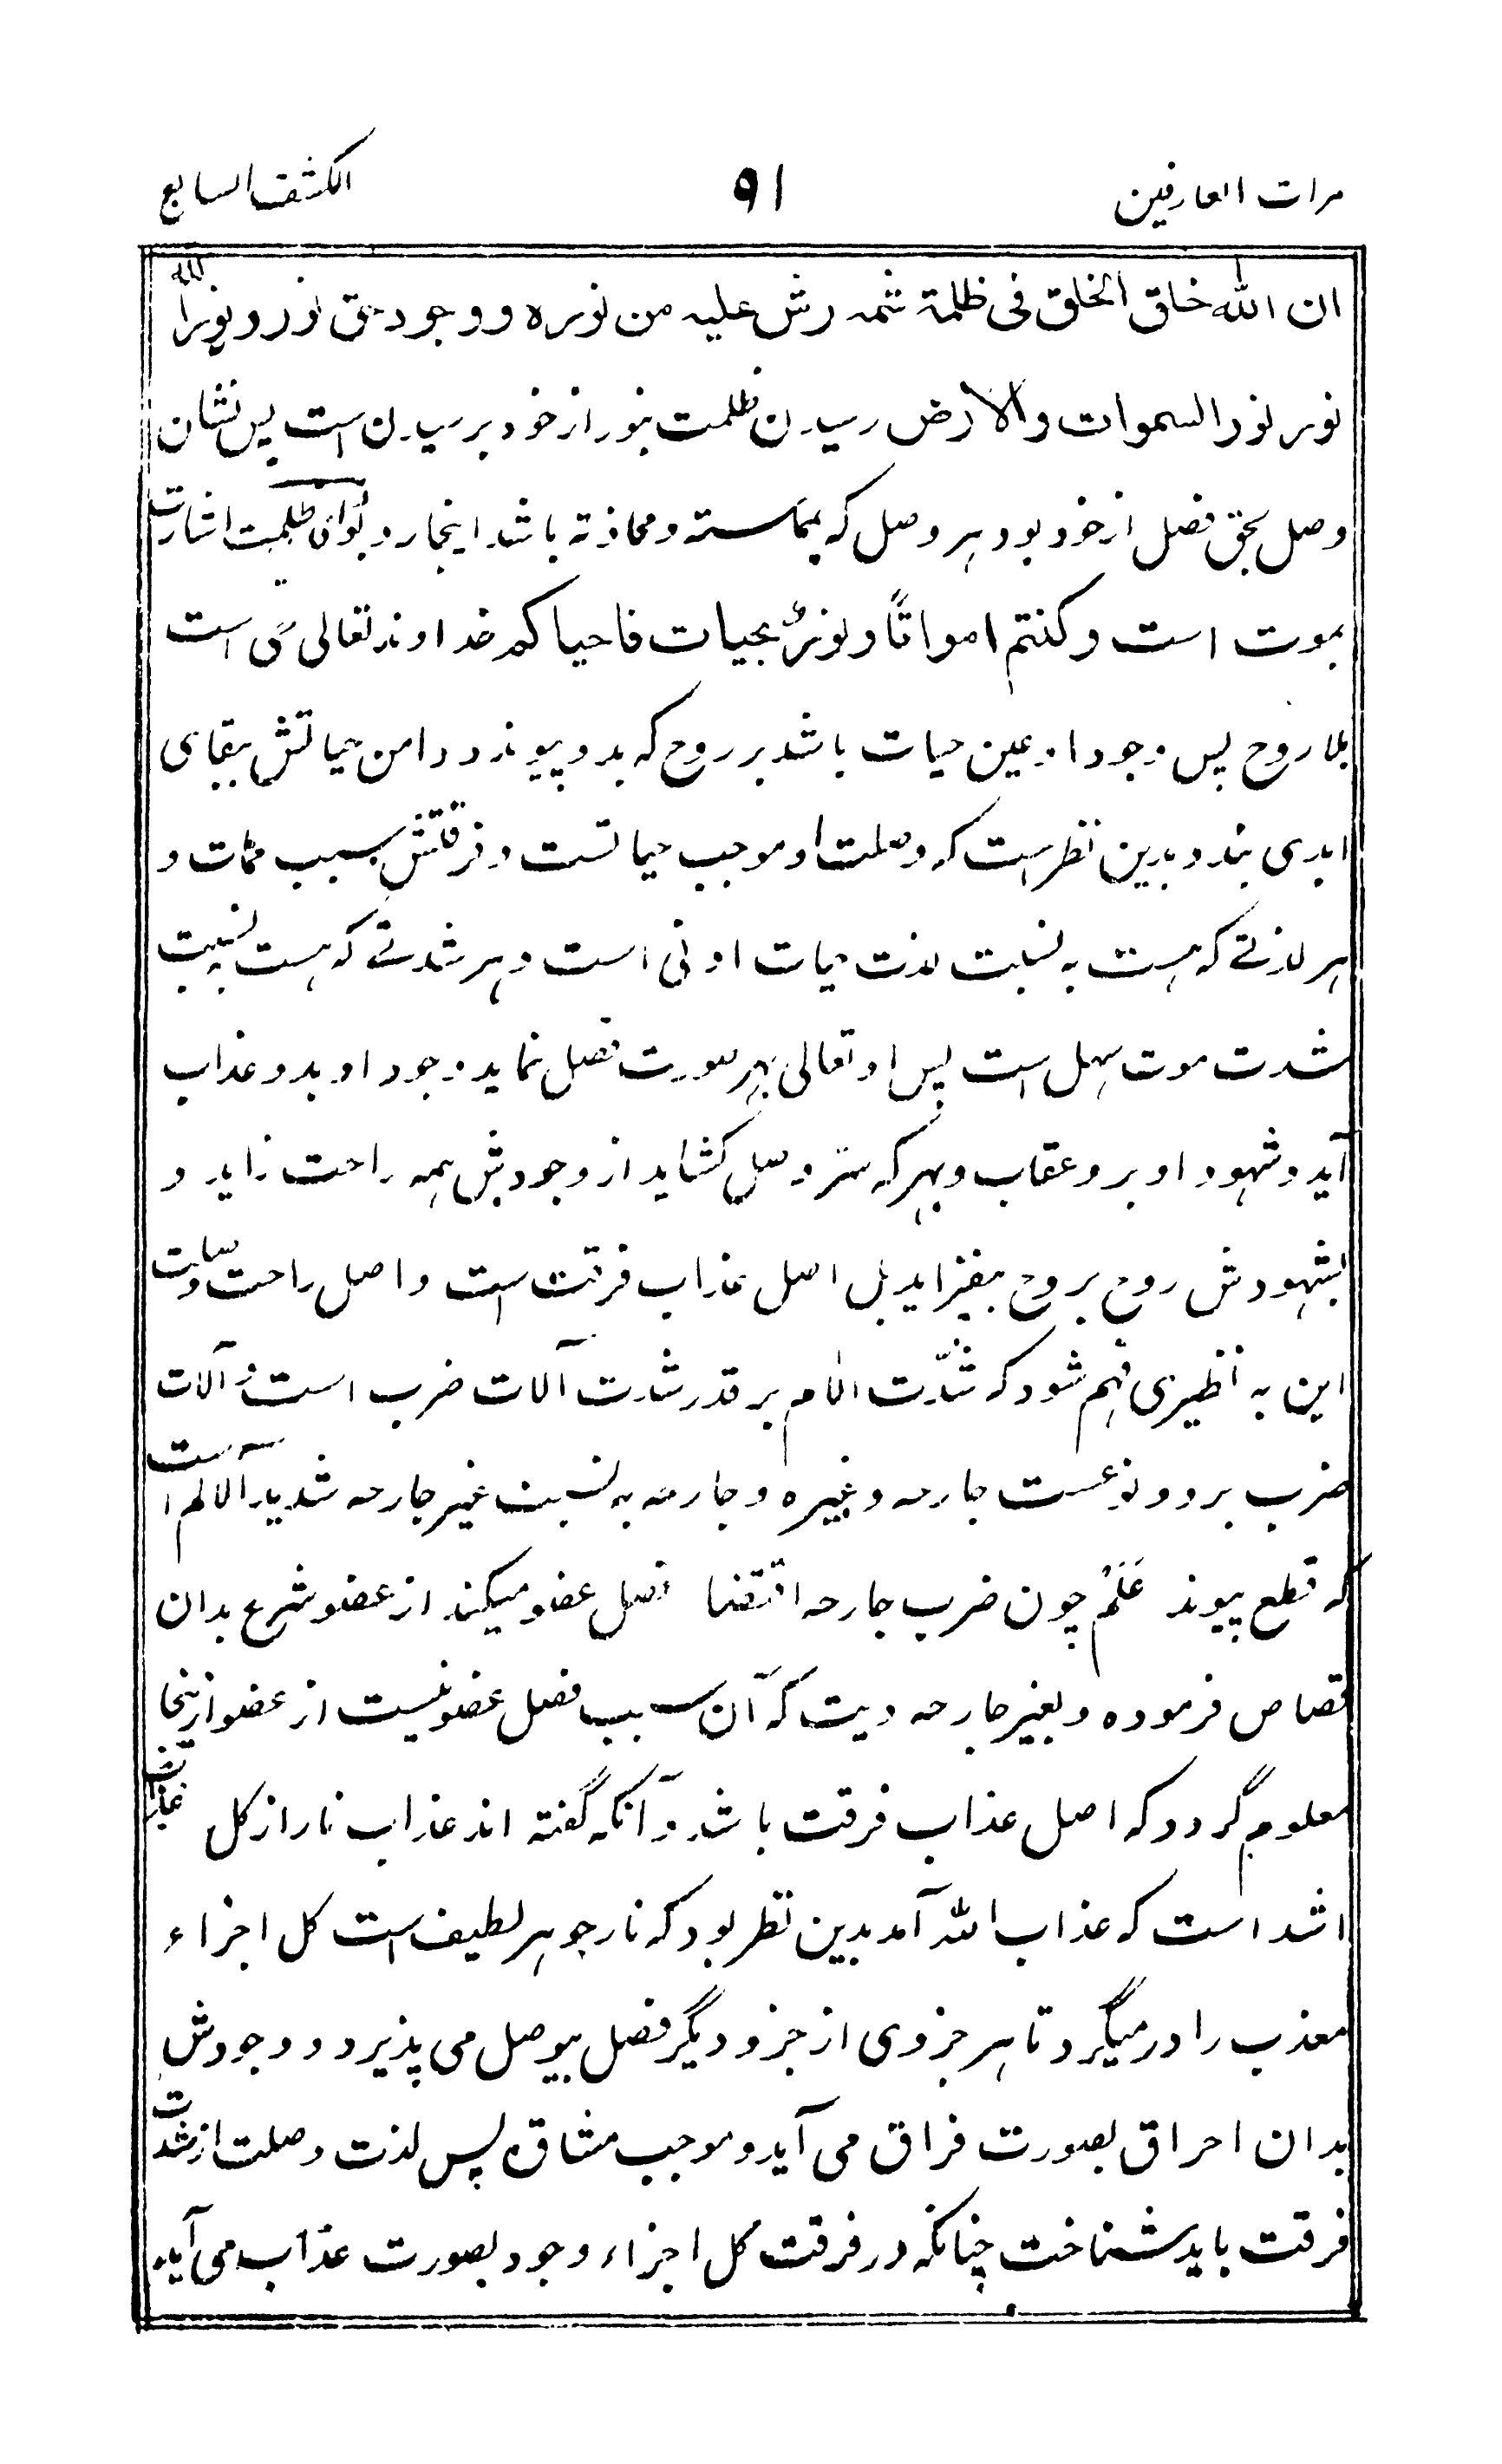 مرات العارفین ۹۱ الکشف السابع
ان الله خلق الخلق فی ظلمة ثم رش علیه من نوره و وجود حق نور و نور الله
نور نور السموات والارض رسیدن ظلمت بنور از خود بر سیدن است پس نشان
وصل بحق فصل از خود بود هر وصل که بمماسته و محاذته باشد اینجا رد بود آن ظلمت اشارت
بموت است و کنتم امواتا و نور بحیات فاحیاکم خداوند تعالی حی است
بلا روح پس وجود او عین حیات باشد بر روح که بدو پیوندد دامن حیاتش ببقای
ابدی بندد و بدین نظر است که وصلت او موجب حیاتست و فرقتش سبب ممات و
هر لذتے که هست به نسبت لذت حیات ادنی است و هر شدتے که هست به نسبت
شدت موت سهل است پس او تعالی بهر صورت فصل نماید وجود او بدو عذاب
آید و شهود او برو عقاب و بهر که ستر وصل کشاید از وجودش همه راحت زاید و
بشهودش روح بروح بیفزاید بل اصل عذاب فرقت است و اصل راحت وصلت
این به نظیری فهم شود که شدّت الام بر قدر شدت آلات ضرب است و آلات
ضرب بر دو نوعست جارحه و غیره و جارحه به نسبت غیر جارحه شدید الالم است
که قطع پیوند چون ضرب جارحه اقتضا فصل عضو میکند از عضو شرع بدان
قصاص فرموده و بغیر جارحه دیت که آن سبب فصل عضو نیست از عضو ازینجا
معلوم گردد که اصل عذاب فرقت باشد و آنکه گفته اند عذاب نار از کل
اشد است که عذاب الله آمد بدین نظر بود که نار جوهر لطیف است کل اجزاء
معذب را در میگرد تا هر جزوی از جزو دیگر فصل بیوصل می پذیرد و وجودش
بدان احراق بصورت فراق می آید و موجب مشاق پس لذت وصلت از شدت
فرقت باید شناخت چنانکه در فرقت کل اجزاء وجود بصورت عذاب می آید